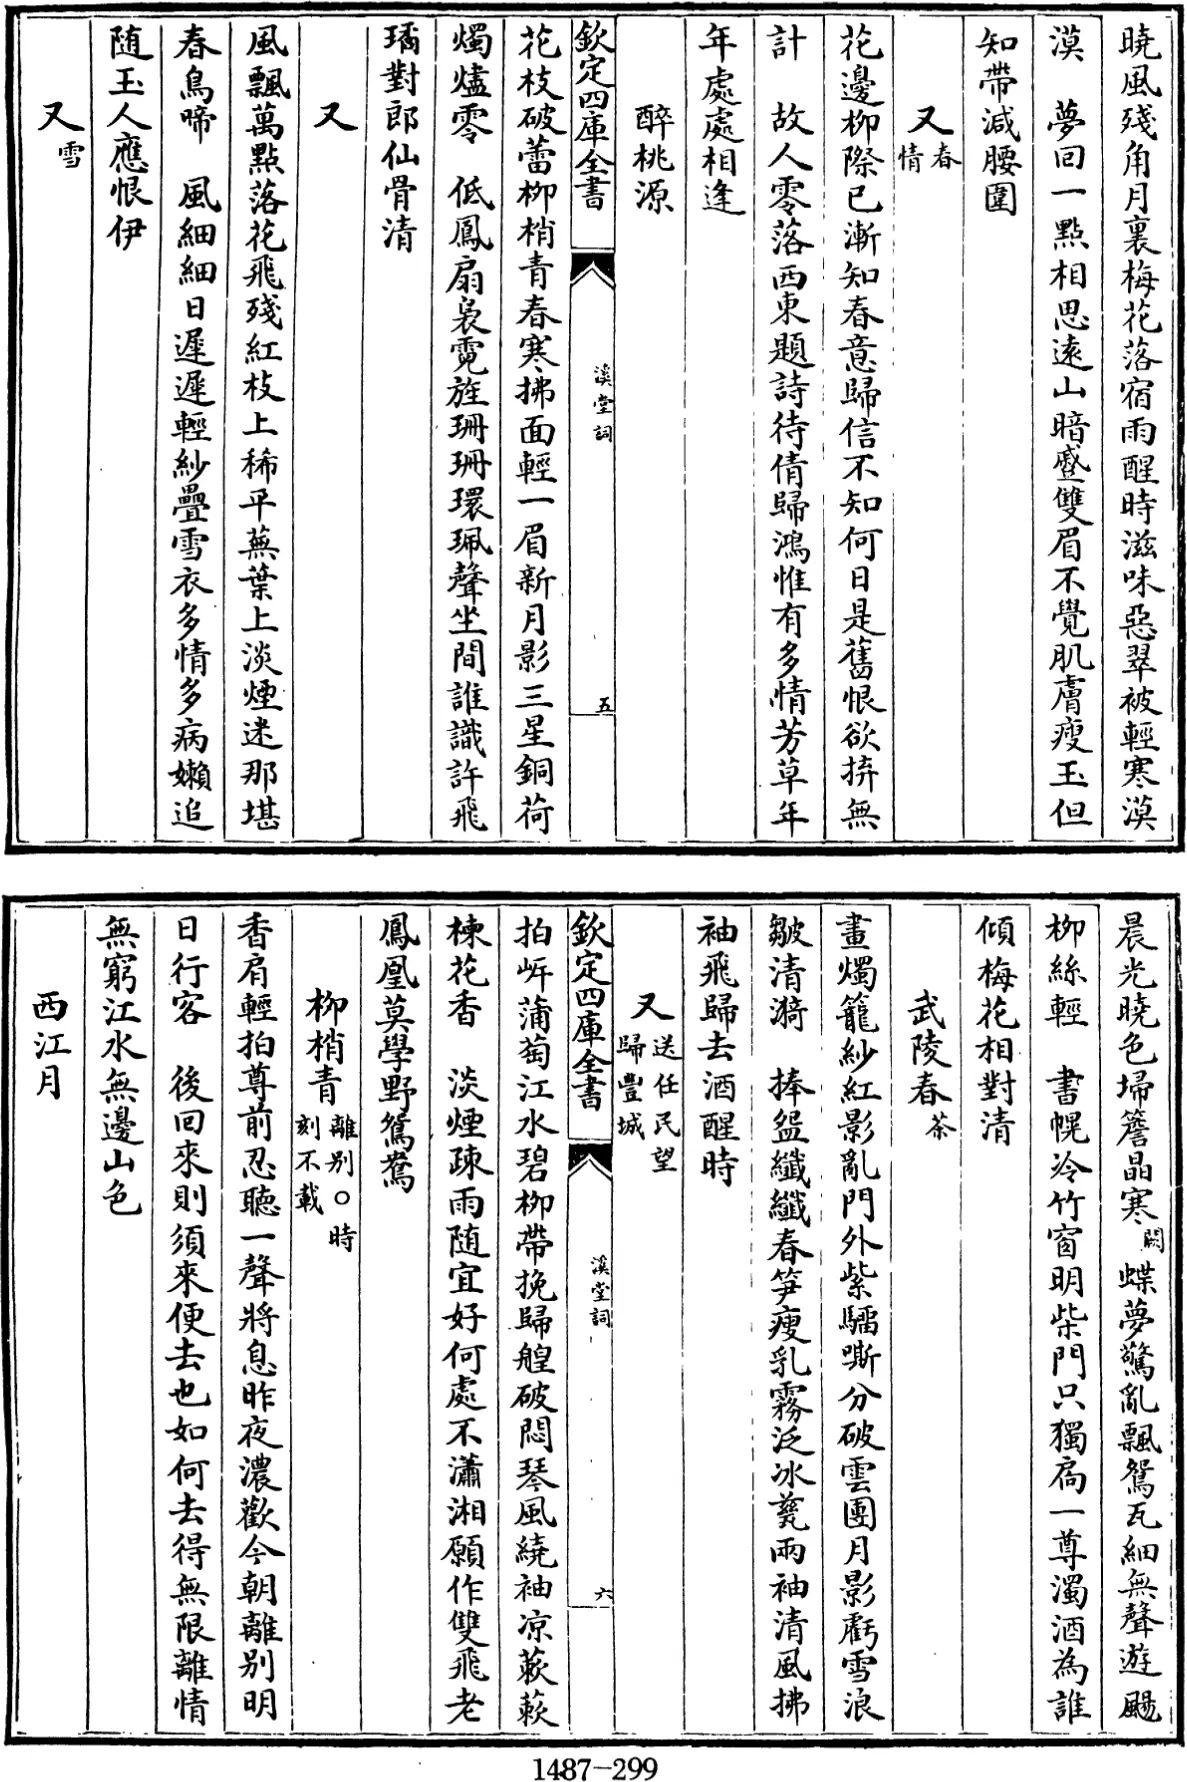 曉風殘角月裏梅花落宿雨醒時滋味惡翠被輕寒漠
漠　夢回一點相思遠山暗蹙雙眉不覺肌膚瘦玉但
知帶減腰圍
又春情
花邊柳際已漸知春意歸信不知何日是舊恨欲拚無
計　故人零落西東題詩待倩歸鴻惟有多情芳草年
年處處相逢
醉桃源
欽定四庫全書　溪堂詞　五
花枝破蕾柳梢青春寒拂面輕一眉新月影三星銅荷
燭燼零　低鳳扇裊霓旌珊珊環珮聲坐間誰識許飛
璚對郎仙骨清
又
風飄萬點落花飛殘紅枝上稀平蕪葉上淡煙迷那堪
春鳥啼　風細細日遲遲輕紗疊雪衣多情多病嬾追
隨玉人應恨伊
又雪
晨光曉色埽簷晶寒闕蝶夢驚亂飄鴛瓦細無聲遊颺
柳絲輕　書幌冷竹窗明柴門只獨扃一尊濁酒為誰
傾梅花相對清
武陵春茶
畫燭籠紗紅影亂門外紫騮嘶分破雲團月影虧雪浪
皺清漪　捧盌纖纖春笋瘦乳霧泛冰甆兩袖清風拂
袖飛歸去酒醒時
又送任民望歸豐城
欽定四庫全書　溪堂詞　六
拍岸蒲萄江水碧柳帶挽歸艎破悶琴風繞袖凉萩萩
楝花香　淡煙疎雨随宜好何處不瀟湘願作雙飛老
鳳凰莫學野鴛鴦
柳梢青離别○時刻不載
香肩輕拍尊前忍聽一聲將息昨夜濃歡今朝離别明
日行客　後回來則須來便去也如何去得無限離情
無窮江水無邊山色
西江月
1487-299